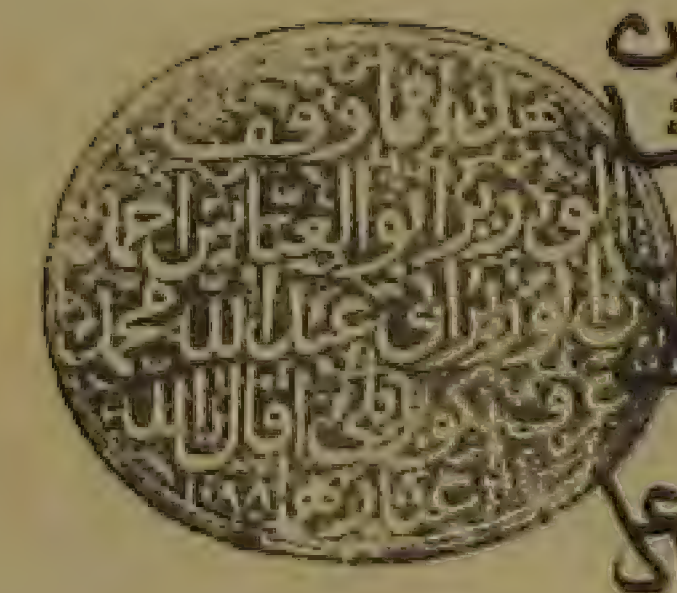 هذا مما وقف
الوزير ابو العباس احمد
بن الوزير ابي عبد الله محمد
عرف بكوپريلى اقال الله
عثارهما